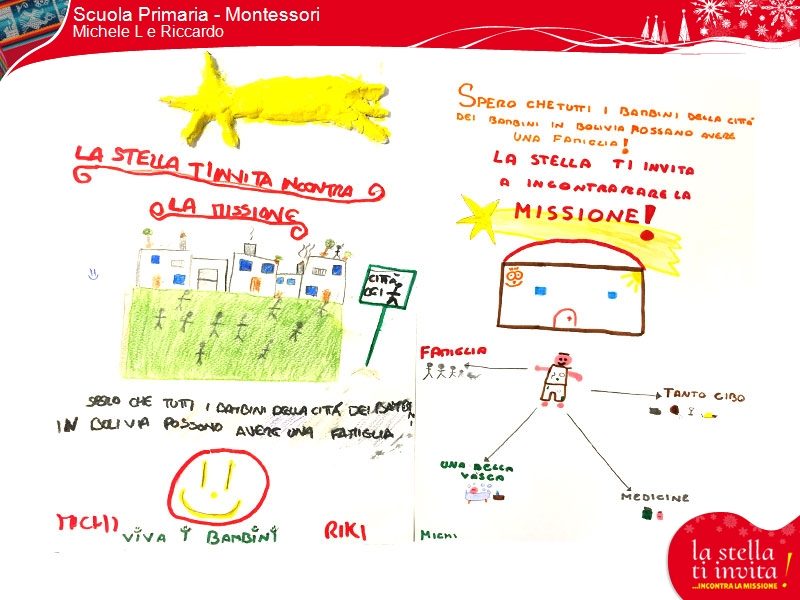 Scuola Primaria - Montessori
Michele L e Riccardo
LA STELLA TI INVITA INCONTRA
LA MISSIONE
CITTÀ
DEI
SPERO CHE TUTTI I BAMBINI DELLA CITTÀ DEI BAMBINI
IN BOLIVIA POSSANO AVERE UNA FAMIGLIA
MICHI
VIVA I BAMBINI
RIKI
SPERO CHE TUTTI I BAMBINI DELLA CITTÀ
DEI BAMBINI IN BOLIVIA POSSANO AVERE
UNA FAMIGLIA!
LA STELLA TI INVITA
A INCONTRARARE LA
MISSIONE!
FAMIGLIA
TANTO CIBO
UNA BELLA
VASCA
MEDICINE
MICHI
la stella
ti invita!
...INCONTRA LA MISSIONE